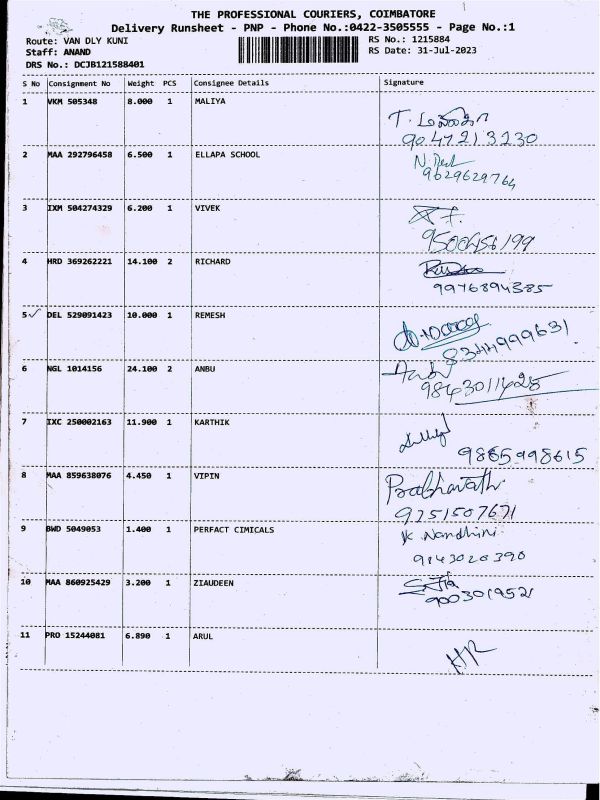 THE PROFESSIONAL COURIERS, COIMBATORE
Delivery Runsheet - PNP - Phone No.:0422-3505555 - Page No.:1
Route: VAN DLY KUNI RS No.: 1215884
Staff: ANAND RS Date: 31-Jul-2023
DRS No.: DCJB121588401
S No Consignment No Weight PCS Consignee Details Signature
1 VKM 505348 8.000 1 MALIYA
9047213230
2 MAA 292796458 6.500 1 ELLAPA SCHOOL
9629629764
3 IXM 504274329 6.200 1 VIVEK
9500456199
4 HRD 369262221 14.100 2 RICHARD
9976894385
5 DEL 529091423 10.000 1 REMESH
8344999631
6 NGL 1014156 24.100 2 ANBU
9843011428
7 IXC 250002163 11.900 1 KARTHIK
9865998615
8 MAA 859638076 4.450 1 VIPIN
Prabhavathi
9251507671
9 BWD 5049053 1.400 1 PERFACT CIMICALS
K Nandhini
9143020390
10 MAA 860925429 3.200 1 ZIAUDEEN
9003019521
11 PRO 15244081 6.890 1 ARUL